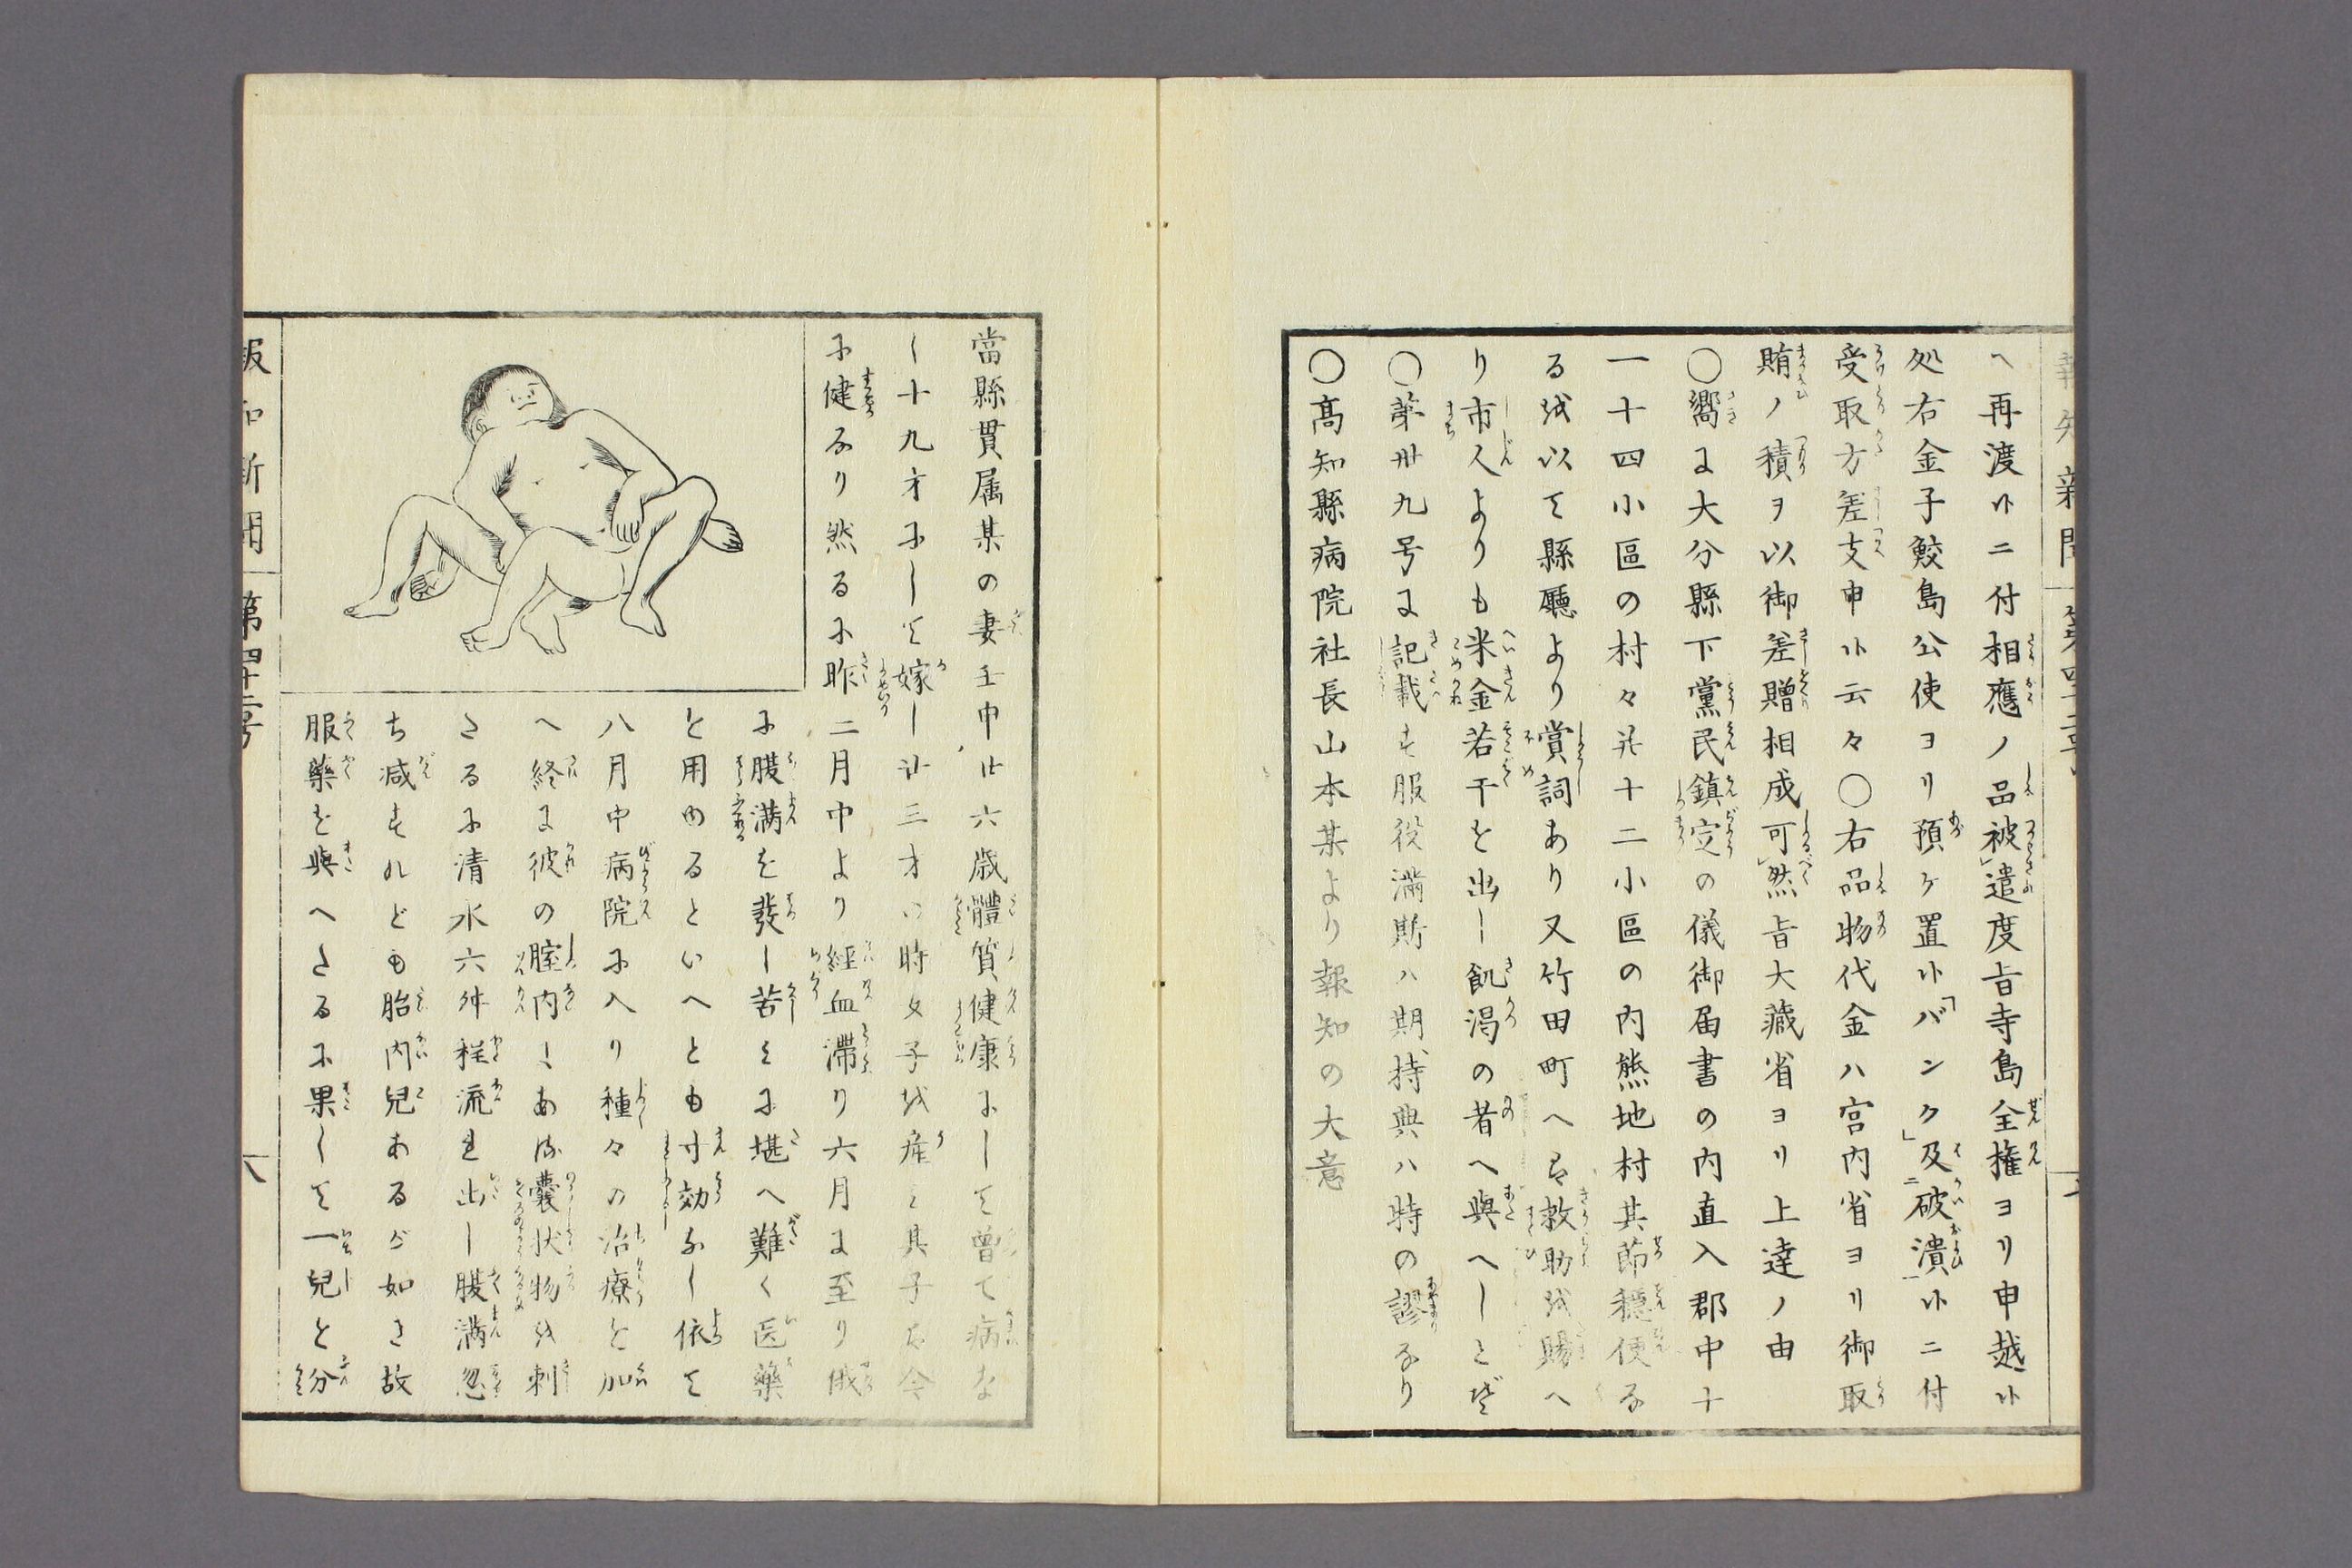 報知新聞
第四十二号
ヘ再渡候ニ付相應ノ品被遣度旨寺島全権ヨリ申越候
処右金子鮫島公使ヨリ預ケ置候「バンク」及破潰候ニ付
受取方差支申候云々○右品物代金ハ宮内省ヨリ御取
賄ノ積ヲ以御差贈相成可然旨大藏省ヨリ上達ノ由
○嚮に大分縣下黨民鎮定の儀御届書の内直入郡中十
一十四小區の村々并十二小區の内熊地村其節穏便な
る越以て縣廳より賞詞あり又竹田町へも救助越賜へ
り市人よりも米金若干を出し飢渇の者へ與へしとぞ
○第卅九号に記載す服役満期ハ期持典ハ時の謬なり
○高知縣病院社長山本某より報知の大意
當縣貫属某の妻壬申廿六歳體質健康にして曽て病な
し十九才にして嫁し廿三才の時女子を産ミ其子は今
に健なり然るに昨二月中より経血滞り六月に至り俄
に腹満を發し苦ミに堪へ難く医藥
を用ゆるといへとも寸効なし依て
八月中病院に入り種々の治療を加
へ終に彼の腟内にある嚢状物を刺
たるに清水六舛程流れ出し腹満忽
ち減すれども胎内兒あるが如き故
服藥を與へたるに果して一兒を分
報知新聞
第四十二号
八